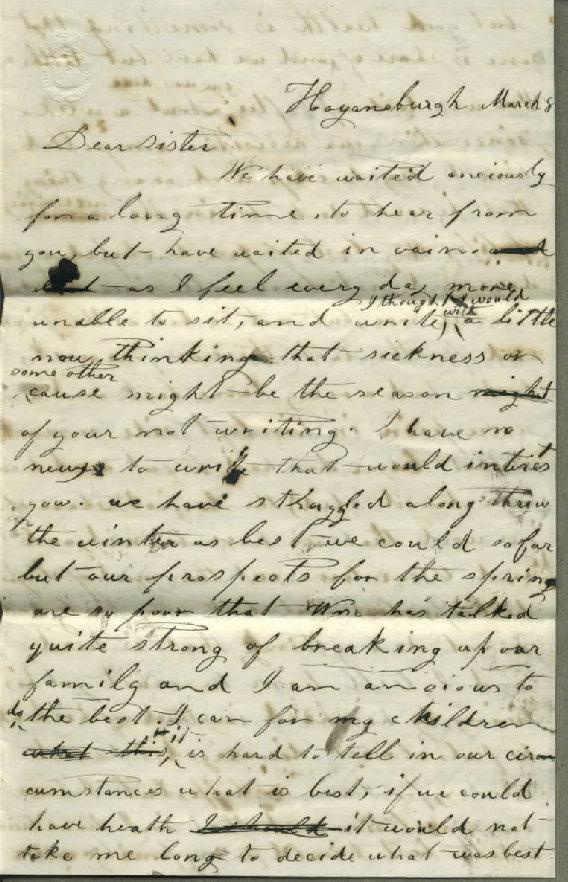 Hoganeburgh March 8
Dear Sister
We have waited anciously
for a long time to hear from
you, but have waited in vain
as I feel every day more
I thought I would
unable to sit, and write, with a little
now, thinking that sickness or
some other
cause might be the season might
of your not writing. I have no
news to write that would interes
you. we have struggled along threw
the winter as best we could so far
but our prospects for the spring
are so poor that Wm has talked
quite strong of breaking up our
family and I am ancious to
do the best I can for my children
what this, it is hard to tell in our cir
cumstances what is best, if we could
have heath I should it would not
take me long to decide what was best